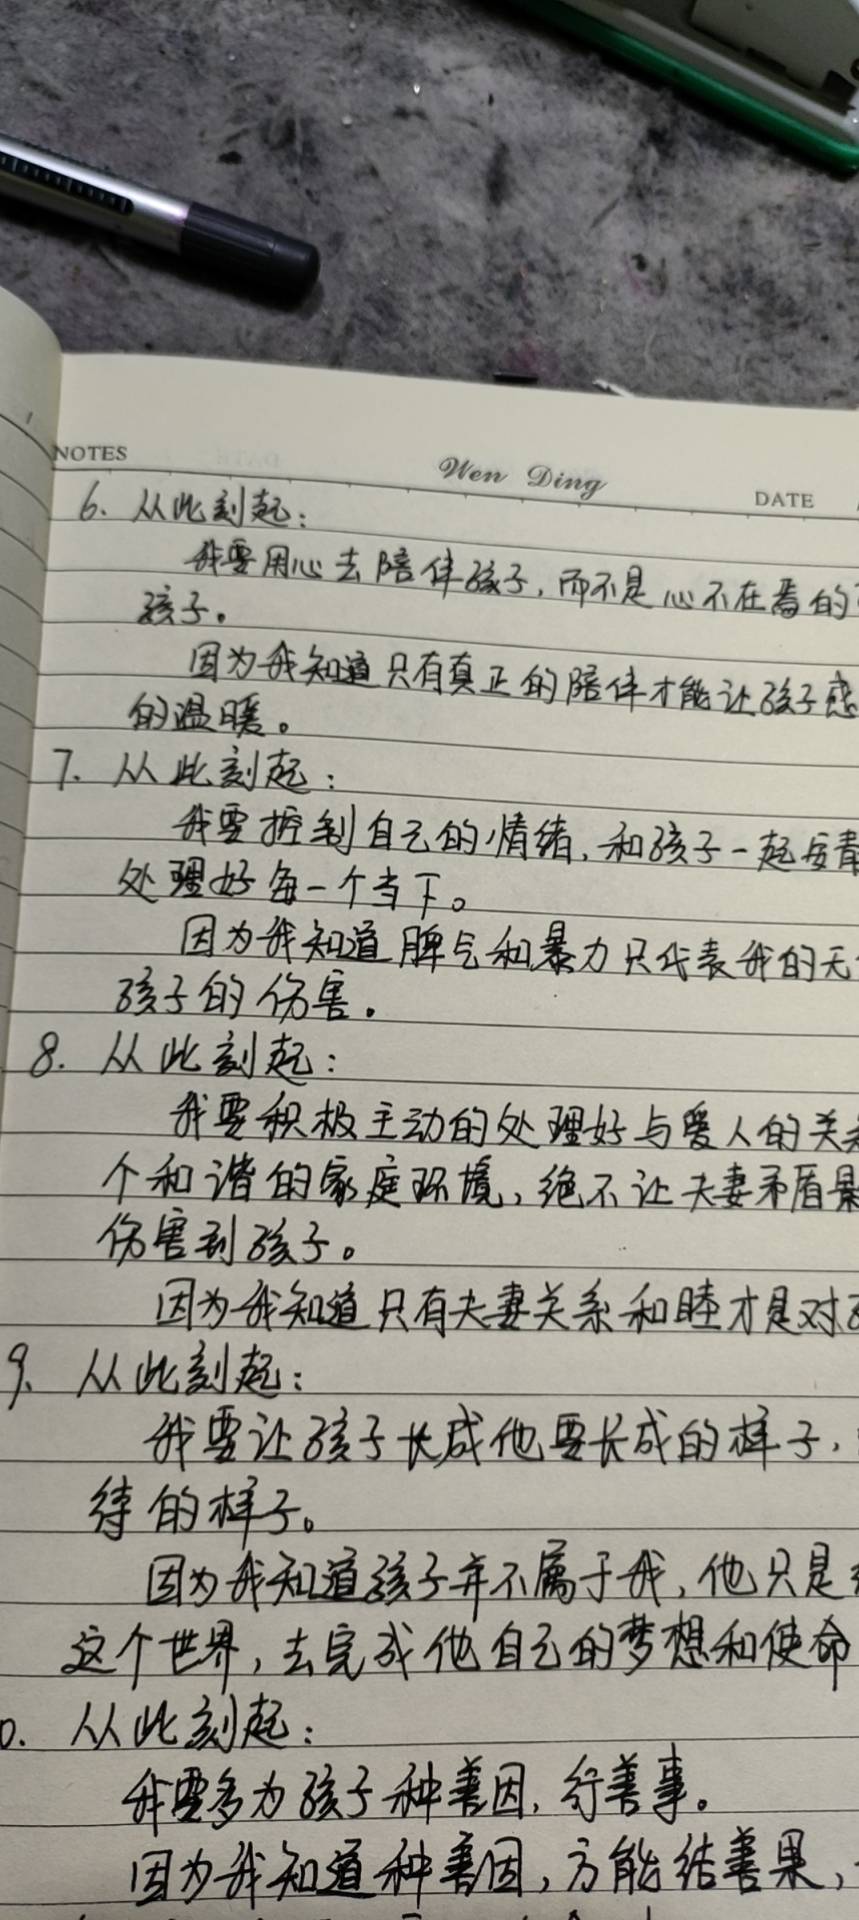 NOTES
Wen Ding
DATE
6. 从此刻起：
我要用心去陪伴孩子，而不是心不在焉的
孩子。
因为我知道只有真正的陪伴才能让孩子感
的温暖。
7. 从此刻起：
我要控制自己的情绪，和孩子一起与青
处理好每一个当下。
因为我知道脾气和暴力只代表我的无
孩子的伤害。
8. 从此刻起：
我要积极主动的处理好与爱人的关系
个和谐的家庭环境，绝不让夫妻矛盾暴
伤害到孩子。
因为我知道只有夫妻关系和睦才是对
9. 从此刻起：
我要让孩子长成他要长成的样子，
待的样子。
因为我知道孩子并不属于我，他只是
这个世界，去完成他自己的梦想和使命
0. 从此刻起：
我要多为孩子种善因，行善事。
因为我知道种善因，方能结善果，